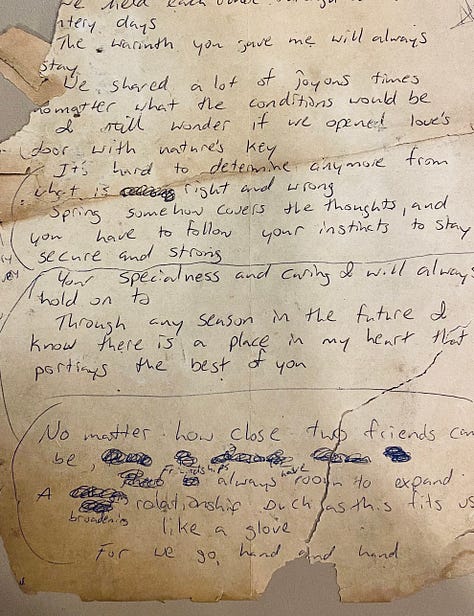 We held each other through
ntery days
The warmth you gave me will always
stay
We shared a lot of joyous times
nomatter what the conditions would be
I still wonder if we opened love's
door with nature's key
It's hard to determine anymore from
what is right and wrong
Spring somehow covers the thoughts, and
you have to follow your instincts to stay
secure and strong
Your specialness and caring I will always
hold on to
Through any season in the future I
know there is a place in my heart that
portrays the best of you
No matter how close two friends can
be,
friendships have
always room to expand.
A relationship such as this fits us
broadening
like a glove
For we go, hand and hand